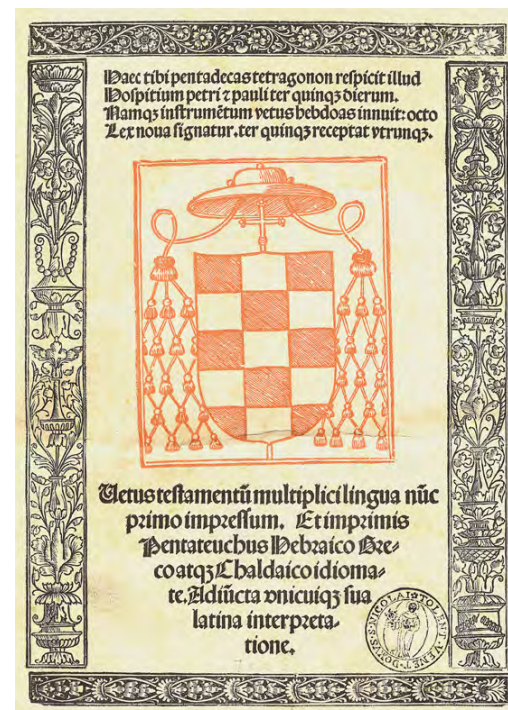 Haec tibi pentadecas tetragonon respicit illud
Hospitium petri ⁊ pauli ter quinqꝫ dierum.
Namqꝫ instrumētum vetus hebdoas innuit: octo
Lex noua signatur. ter quinqꝫ receptat vtrunqꝫ.
Uetus testamentū multiplici lingua nūc
primo impressum. Et imprimis
Pentateuchus Hebraico Gre⸗
co atqꝫ Chaldaico idioma⸗
te. Adiūcta vnicuiqꝫ sua
latina interpreta⸗
tione.
NICOLAI TOLENT VENET DOMVS S